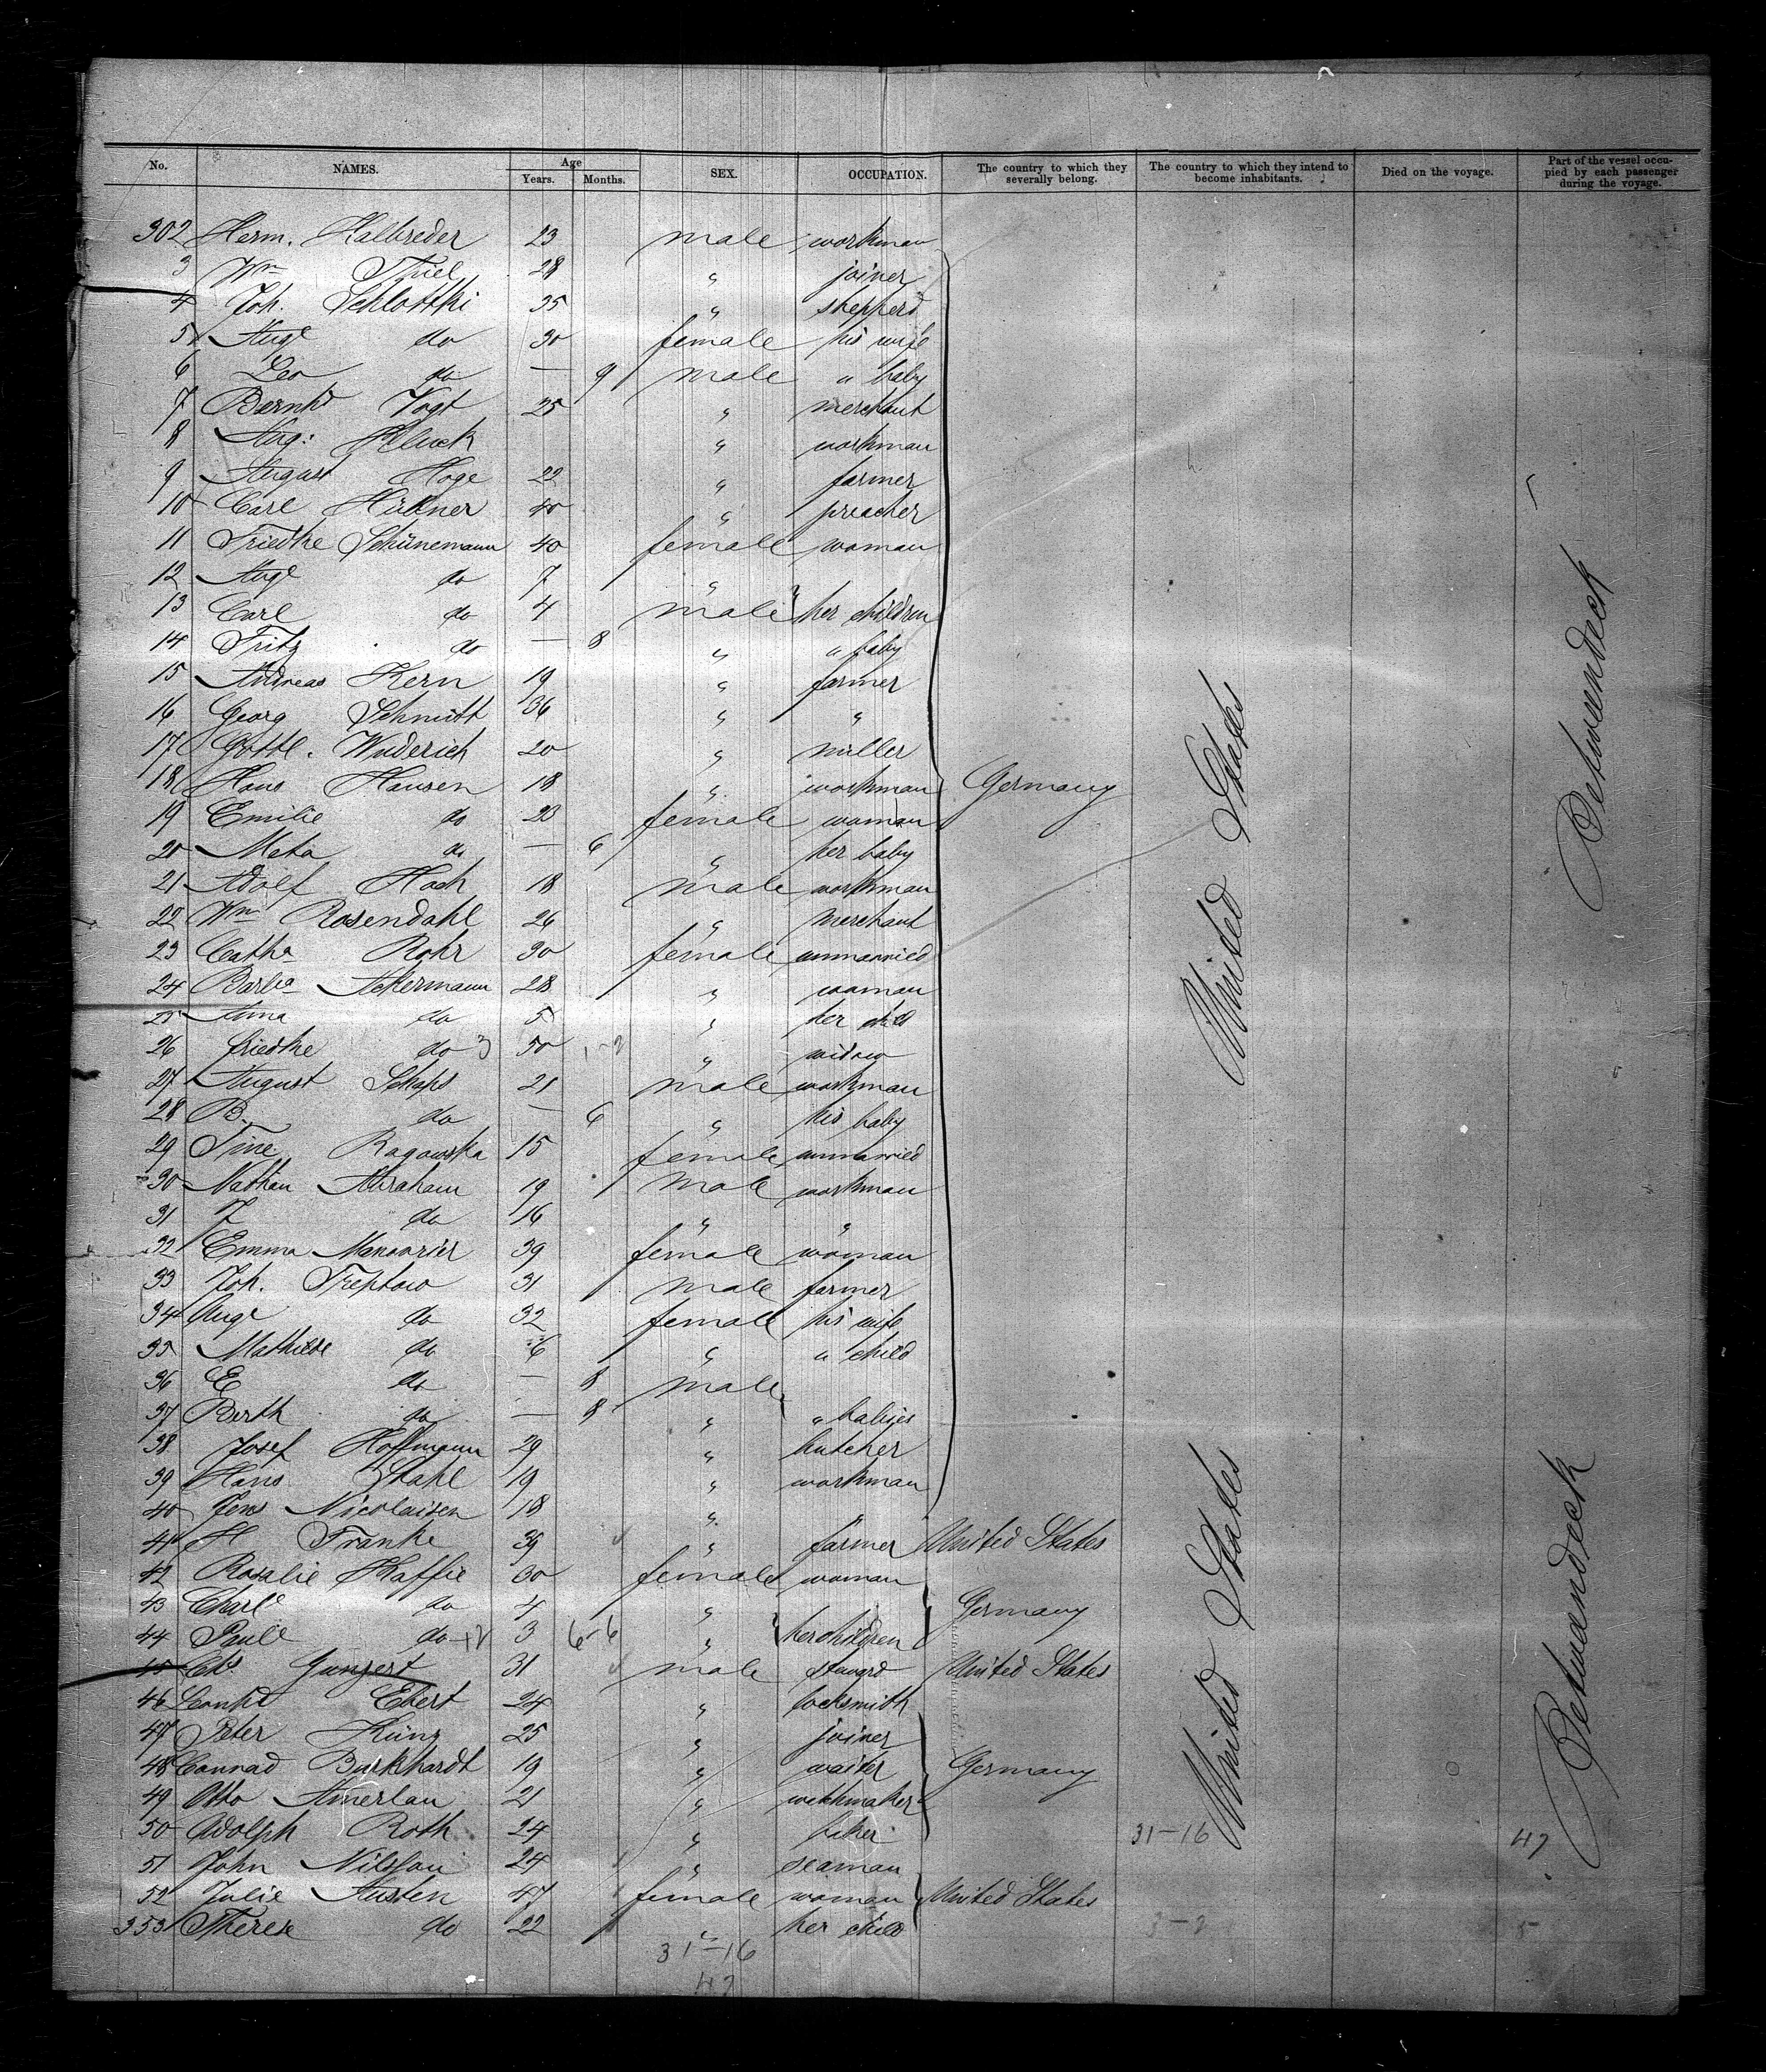 No. NAMES. Age Years. Months. SEX. OCCUPATION. The country to which they severally belong. The country to which they intend to become inhabitants. Died on the voyage. Part of the vessel occupied by each passenger during the voyage.
302 Herm. Halbreder 23 male workman
3 Wm Thiel 28 " joiner
4 Joh. Schlottki 35 " shepperd
5 Auge do 30 female his wife
6 Leo do — 9 male " baby
7 Bernhd Vogt 25 " merchant
8 Aug: Kluck " workman
9 August Hoge 22 " farmer
10 Carl Hübner 40 " preacher
11 Friedke Schünemann 40 female woman
12 Auge do 7 "
13 Carl do 4 male her children
14 Fritz do — 8 " " baby
15 Andreas Kern 19 " farmer
16 Georg Schmitt 36 " "
17 Gottl. Wuderich 20 " miller
18 Hans Hansen 18 " workman Germany
19 Emilie do 23 female woman
20 Meta do — 6 " her baby
21 Adolf Hoch 18 male workman
22 Wm Rosendahl 26 " merchant
23 Catha Rohr 30 female unmarried
24 Barba Ackermann 28 " woman
25 Anna do 5 " her child
26 Friedke do 50 " widow
27 August Schaps 21 male workman
28 B. do — 6 " his baby
29 Tine Rogowska 15 female unmarried
30 Nathan Abraham 19 male workman
31 J do 16 " "
32 Emma Manovrier 39 female woman
33 Joh. Treptow 31 male farmer
34 Auge do 32 female his wife
35 Mathilde do 6 " " child
36 E do — 8 male
37 Berth do — 8 " " babies
38 Josef Hoffmann 29 " butcher
39 Hans Stahl 19 " workman
40 Jens Nicolaisen 18 " "
41 H Franke 39 " farmer United States
42 Rosalie Kaffie 30 female woman
43 Charle do 4 " Germany
44 Paule do 3 6-6 " her children
45 Chs Gunzert 31 male steward United States
46 Conrd Ebert 24 " locksmith
47 Peter Künz 25 " joiner
48 Connad Burkhardt 19 " waiter Germany
49 Otto Amerlan 21 " wethmaker
50 Adolph Roth 24 " beker 31-16 47
51 John Nilsson 24 " seaman
52 Julie Austen 47 female woman United States
353 Therese do 22 " her child 3-2 5
31-16
47
United States
Betweendeck
United States
Betweendeck